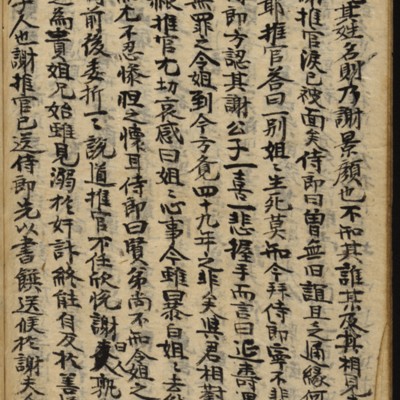 其姓名則乃謝景顔也不知其誰某及其相見
推官淚已被面矣侍郎曰曾無旧誼且乏通緣何
耶推官答曰一別姐〻生死莫知今拜侍郎寧不悲
侍郎方認其謝公子一喜一悲握手而言曰延壽
無罪之令姐到今方覺四十九年之非矣與君相對
推官尤切哀感曰姐〻心事今雖暴白姐〻去
尤不忍慘怛之懷耳侍郎曰賢弟尚不知令姐之
前後委折一〻說道推官不任欣悅謝曰人孰
之爲貴姐兄始雖見溺於奸詐終能自反於善
人也謝推官已送侍郎先以書饌送候於謝夫